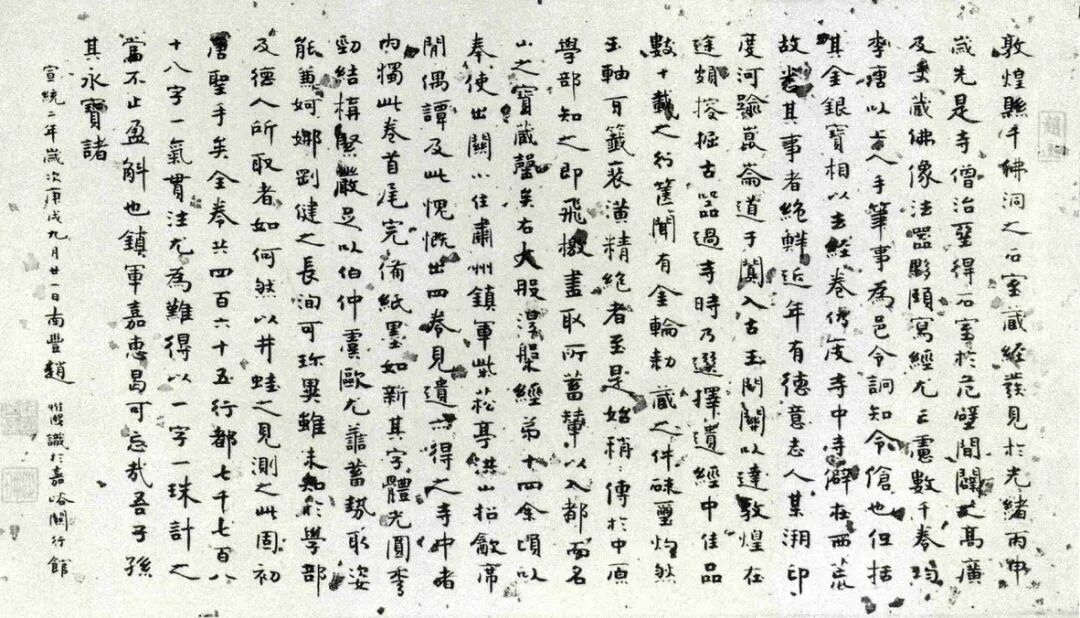 敦煌縣千佛洞之石室藏經發見於光緒丙申
歲先是寺僧治壁得石室於危壁間闢之高廣
及丈藏佛像法器夥頤寫經尤亡慮數千卷均
李唐以上人手筆事為邑令詗知令傖也但括
其金銀寶相以去經卷仍庋寺中寺僻在西荒
故悉其事者絶鮮近年有德意志人某溯印
度河踰崑崙道于闐入古玉門關以達敦煌在
途頻搜掘古器過寺時乃選擇遺經中佳品
數十載之行篋聞有金輪勑藏之件硃璽灼然
玉軸百籤裝潢精絶者至是始稍〻傳於中原
學部知之即飛檄盡取所蓄輦以入都而名
山之寶藏罄矣右大般涅槃經弟十四余頃以
奉使出關小住肅州鎮軍柴菘亭洪山招飲席
閒偶譚及此愾慨出四卷見遺亦得之寺中者
內獨此卷首尾完備紙墨如新其字體光圓秀
勁結構緊嚴足以伯仲虞歐尤善蓄勢取姿
能兼婀娜剛健之長洵可珍異雖未知於學部
及德人所取者如何然以井蛙之見測之此固初
唐聖手矣全卷共四百六十五行都七千七百八
十八字一氣貫注尤為難得以一字一珠計之
當不止盈斛也鎮軍嘉惠曷可忘哉吾子孫
其永寶諸
宣統二年歲次庚戌九月廿一日南豐趙惟熙識於嘉峪關行館